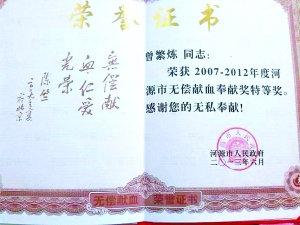 荣誉证书
曾繁炼 同志:
荣获 2007-2012年度河
源市无偿献血奉献奖特等奖。
感谢您的无私奉献!
河源市人民政府
二〇一三年六月
無偿献
血仁爱
光荣
无偿献血 荣誉证书